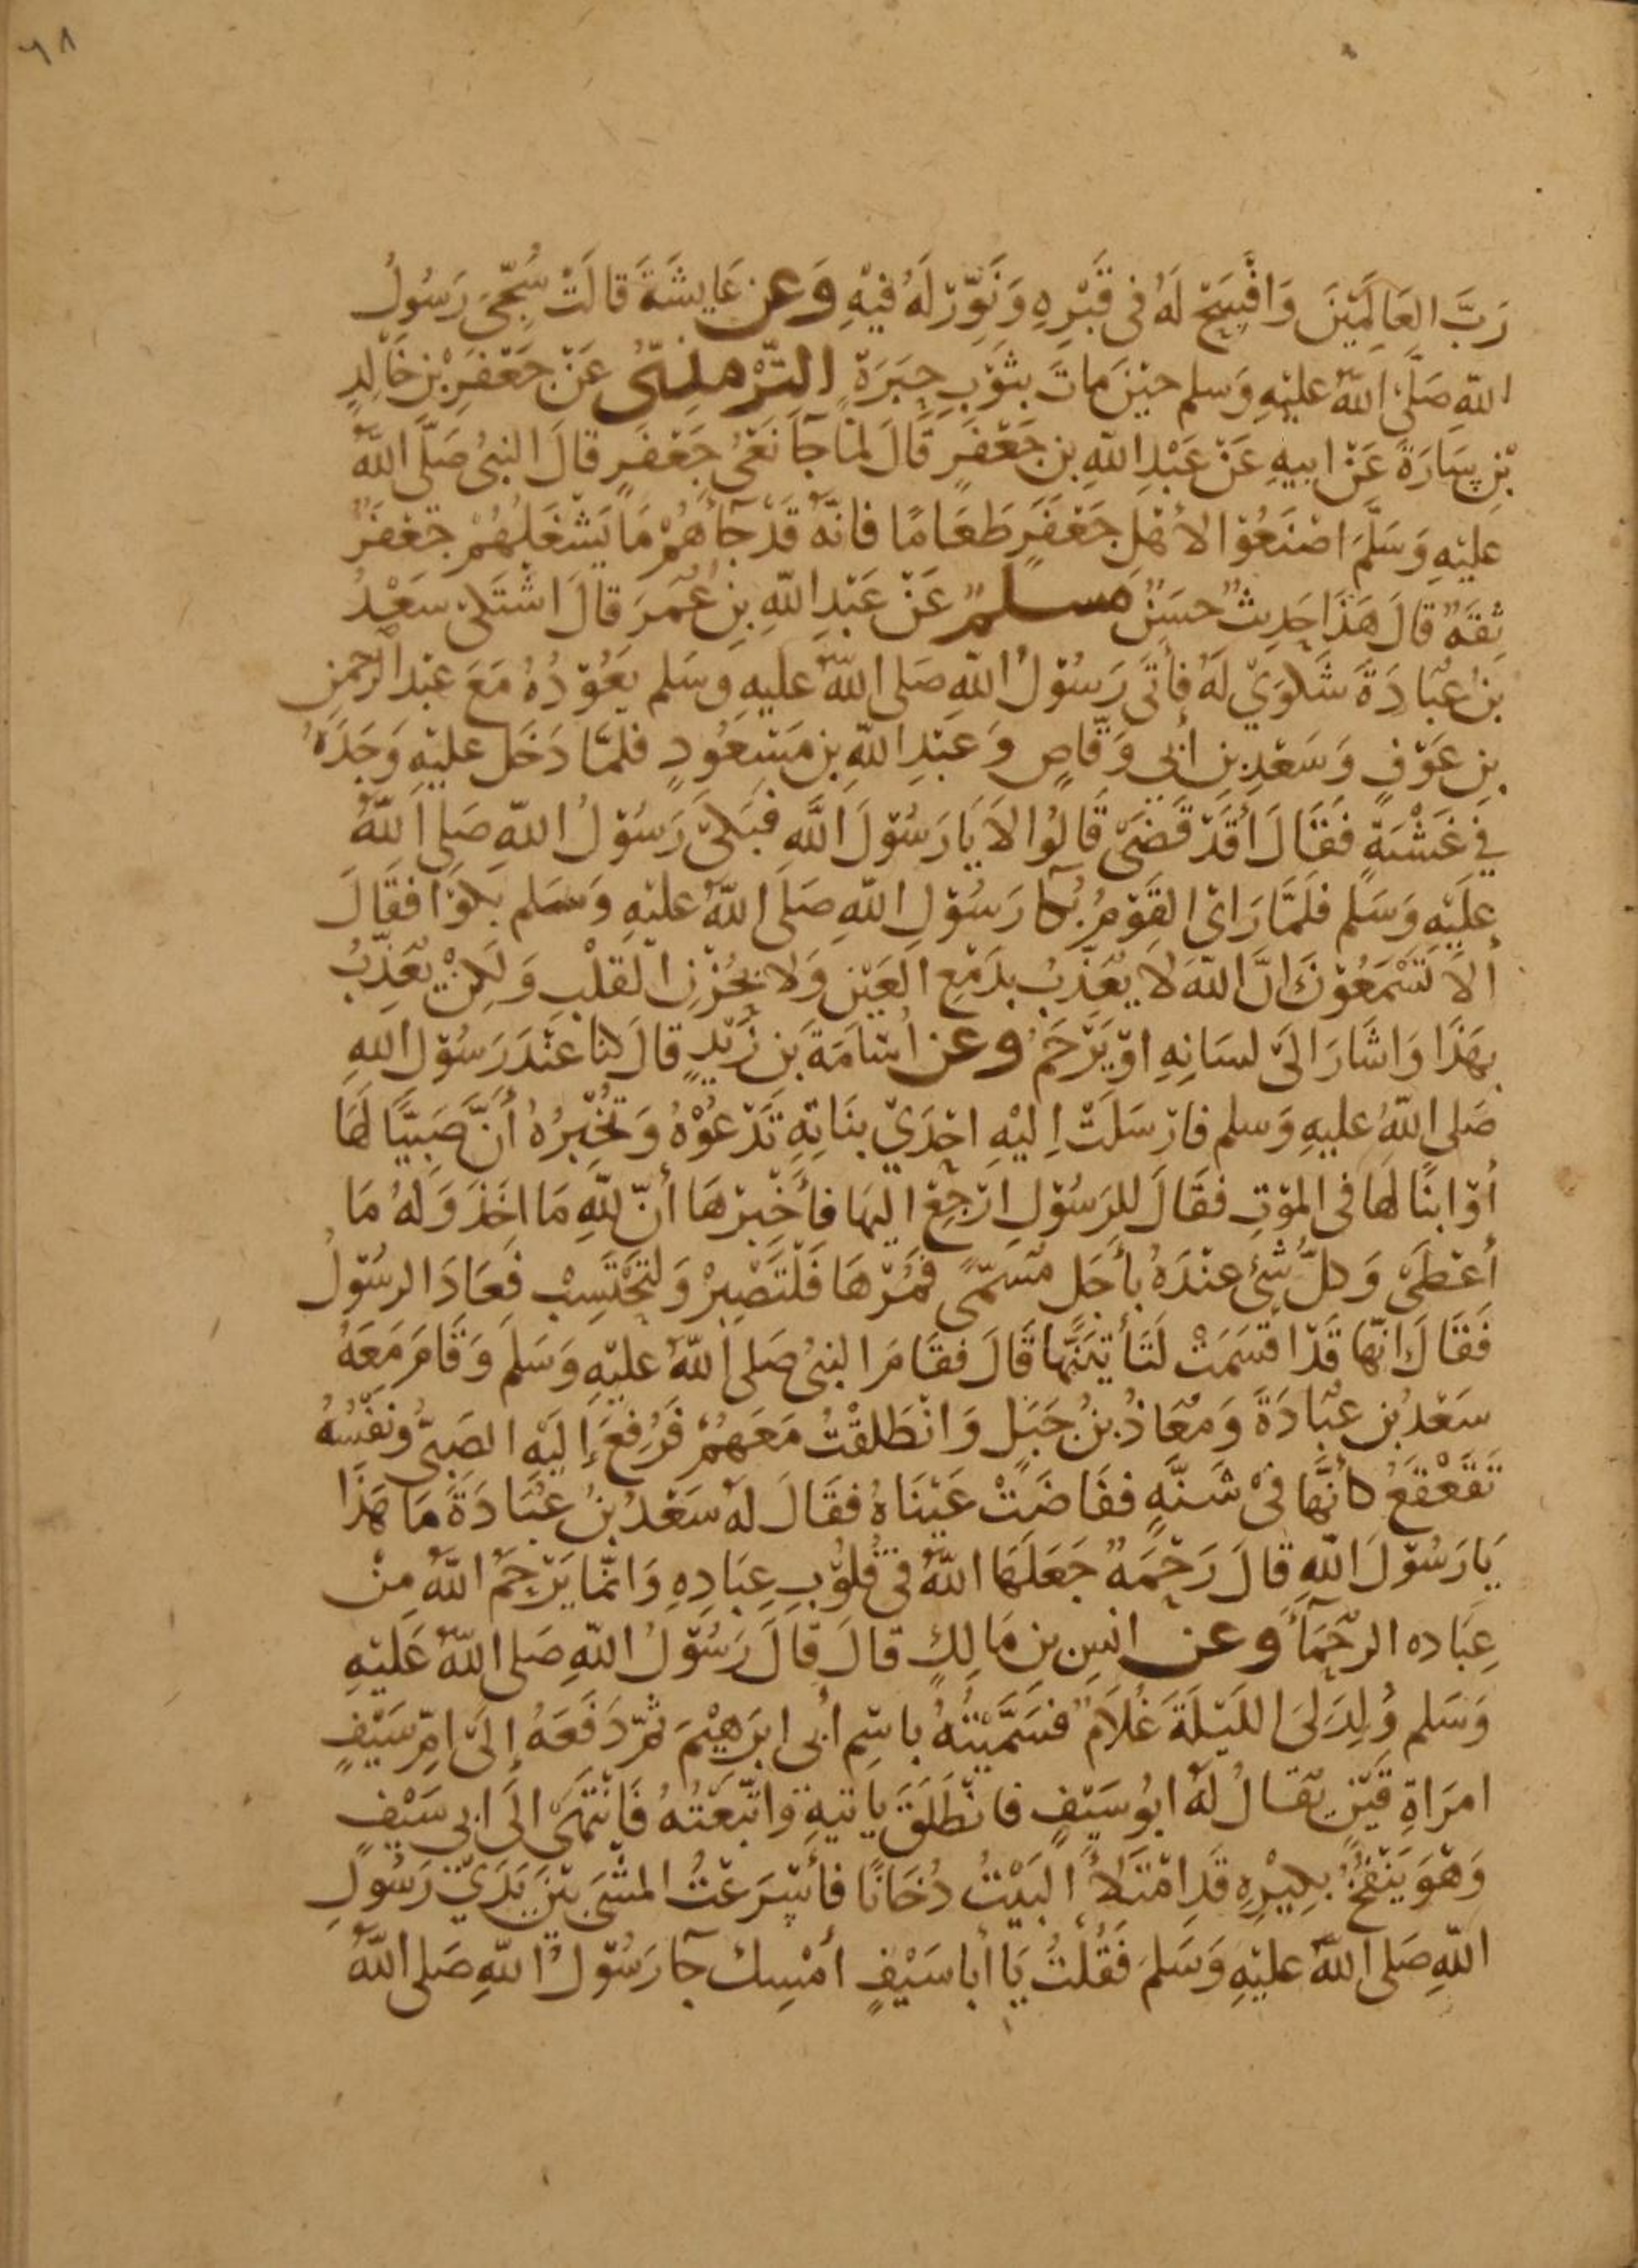 ٦٨
رَبَّ العَالَمِيْنَ وَافْسَحْ لَهُ فى قَبْرِهِ وَنَوِّرْ لَهُ فيْهِ وَعن عَايِشَةَ قالَتْ سُجِّىَ رَسُولُ
اللّهِ صَلَّى اللّهُ عليْهِ وَسلم حيْنَ ماتَ بثَوْبِ حِبَرَةٍ الترْمذِىُّ عَنْ جَعْفَرِ بْنِ خَالِدٍ
بْنِ سَارَةَ عَنْ ابيهِ عَنْ عَبْدِ اللّهِ بن جَعْفَرٍ قَالَ لمّا جآ نَعْىُ جَعْفَرٍ قالَ النبىُ صَلَّى اللّهُ
عليْهِ وَسَلَّمَ اصْنَعُوْا لأهْلِ جَعْفَرٍ طَعَامًا فانَّهُ قَدْ جآءَهُمْ مَا يَشْغَلُهُمْ جَعْفَرٌ
ثِقَةٌ قالَ هَذَا حَدِيثٌ حسَنٌ مسلمٌ عَنْ عَبْدِ اللّهِ بنِ عُمَرَ قالَ اشْتَكَى سعْدُ
بنُ عُبَادَةَ شَكوَىْ لَهُ فأتَى رَسُوْلُ اللّهِ صَلى اللّهُ عليهِ وسَلم يَعُوْدُهُ مَعَ عبْد الرحْمن
بنِ عَوْفٍ وَسَعْدِ بنِ أبي وَقّاصٍ وَعبْدِ اللّهِ بن مَسْعُودٍ فلمّا دَخَل عليْهِ وَجَدَهُ
في غَشْيَةٍ فَقَالَ أقَدْ قَضَى قَالُوا لاَ يَا رَسُوْلَ اللَّهِ فبَكَى رَسُوْلُ اللّهِ صَلى اللّهُ
عليْهِ وَسَلم فلَمَّا رَاىْ القَوْمُ بُكآ رَسُوْلِ اللّهِ صَلى اللّهُ عليْهِ وَسَلم بَكوْا فقَالَ
ألاَ تَسْمَعُوْنَ انَّ اللّهَ لا يُعَذِّبُ بدَمْعِ العَيْنِ وَلا بحُزْنِ القَلْبِ وَلكِنْ يُعَذِّبُ
بهَذَا وَاشَارَ الَى لسَانِهِ اوْ يَرْحَمُ وعن اُسَامَةَ بن زَيْدٍ قالَ كنا عنْدَ رَسُوْل اللهِ
صَلى اللّهُ عليهِ وَسلم فارْسَلَتْ اِليْهِ احْدَىْ بنَاتِهِ تَدْعُوْهُ وَتخْبِرُهُ أنَّ صَبيًّا لهَا
أوْ ابنًا لهَا فى الموْتِ فقَالَ للرسُوْلِ ارْجِعْ اليهَا فأخْبِرْهَا أنّ للّهِ مَا اخَذَ وَلهُ مَا
أعْطَى وَكلُّ شىْءٍ عنْدَهُ بأجَلٍ مُسَمّىً فمُرْهَا فَلْتَصْبِرْ وَلتَحْتَسِبْ فعَادَ الرسُوْلُ
فَقَالَ انّهَا قَدْ اقسَمَتْ لَتَأتيَنَّهَا قَالَ فقَامَ النبىُ صَلى اللّهُ عليْهِ وَسَلمَ وَقَامَ مَعَهُ
سَعْدُ بن عُبَادَةَ وَمُعَاذُ بنُ جَبَلٍ وَانْطَلقْتُ مَعَهُمْ فَرُفِعَ إليْهِ الصَبىُّ ونَفْسُهُ
تَقَعْقَعُ كأنَّهَا فىْ شَنَّةٍ ففَاضَتْ عَيْنَاهُ فقَالَ لَهُ سَعْدُ بنُ عُبَادَةَ مَا هَذَا
يَا رَسُوْلَ اللّهِ قالَ رَحْمَةٌ جَعَلَهَا اللّهُ فىْ قُلُوْبِ عِبَادِهِ وَانمّا يَرْحَمُ اللّهُ مِنْ
عِبَاده الرحَمَآءَ وعن انسِ بنِ مَالِكٍ قالَ قالَ رَسُوْلُ اللّهِ صَلى اللّهُ عَليْهِ
وَسَلم وُلِدَ لىَ الليْلَةَ غُلاَمٌ فسَمَّيْتُهُ باسْمِ أبى ابرَهيْمَ ثمّ دَفَعَهُ إلَى امِّ سَيْفٍ
امرَاةِ قَيْنٍ يُقَالُ لهُ ابُو سَيْفٍ فانْطَلَقَ يَاتيهِ وَاتّبَعْتُهُ فَانْتَهَى الَى ابى سَيْفٍ
وَهْوَ يَنْفُخُ بِكِيْرِهِ قَدِ امْتَلأَ البَيْتُ دُخَانًا فأسْرَعْتُ المشْىَ بيْنَ يَدَىْ رَسُولِ
اللّهِ صَلى اللّهُ عليْهِ وَسَلمَ فَقُلْتُ يَا أبا سَيْفٍ أمْسِك جآ رَسُوْلُ اللّهِ صَلى اللّهُ